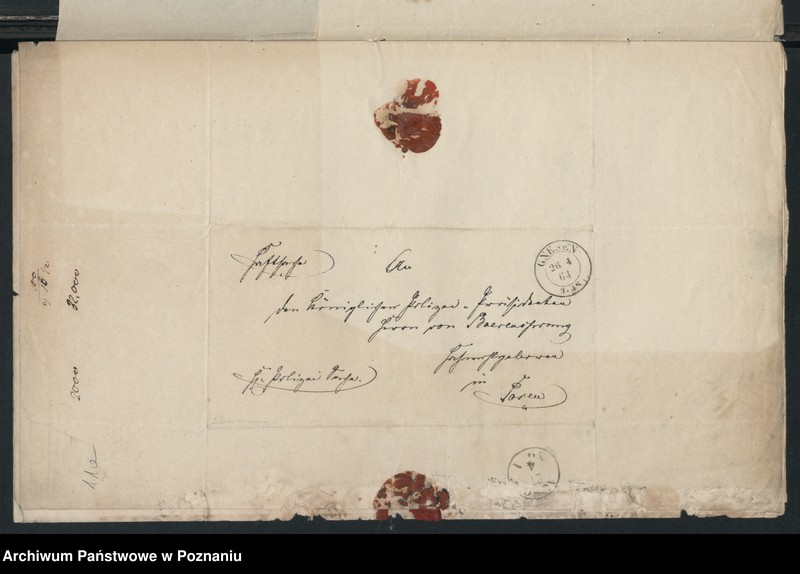 Haftsache
An
den Königlichen Polizei-Präsidenten
Herrn von Baerensprung
Hochwohlgeboren
in
Posen
Hj. Polizei Sache.
GNESEN
26 4
64
2000 32,000
11a
Archiwum Państwowe w Poznaniu